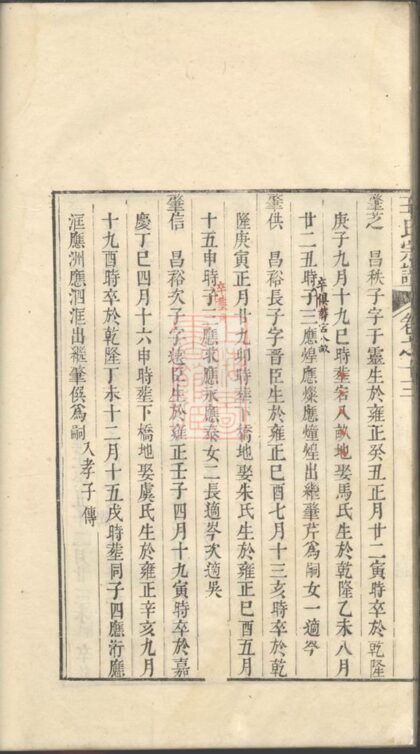 王氏宗譜
肇芝 昌秩子字于靈生於雍正癸丑正月廿二寅時卒於乾隆
庚子九月十九巳時塟宕八畝地娶馬氏生於乾隆乙未八月
廿二丑時子三應煌應燦應爐煌出繼肇芹為嗣女一適岑
卒俱塟宕八畝
肇供 昌裕長子字晋臣生於雍正己酉七月十三亥時卒於乾
隆庚寅正月廿九卯時塟下橋地娶朱氏生於雍正己酉五月
十五申時子三應求應永應泰女二長適岑次適吳
肇信 昌裕次子字遠臣生於雍正壬子四月十九寅時卒於嘉
慶丁巳四月十六申時塟下橋地娶虞氏生於雍正辛亥九月
十九酉時卒於乾隆丁未十二月十五戌時塟同子四應洐應
洭應洲應泗洭出繼肇俟為嗣 入孝子傳